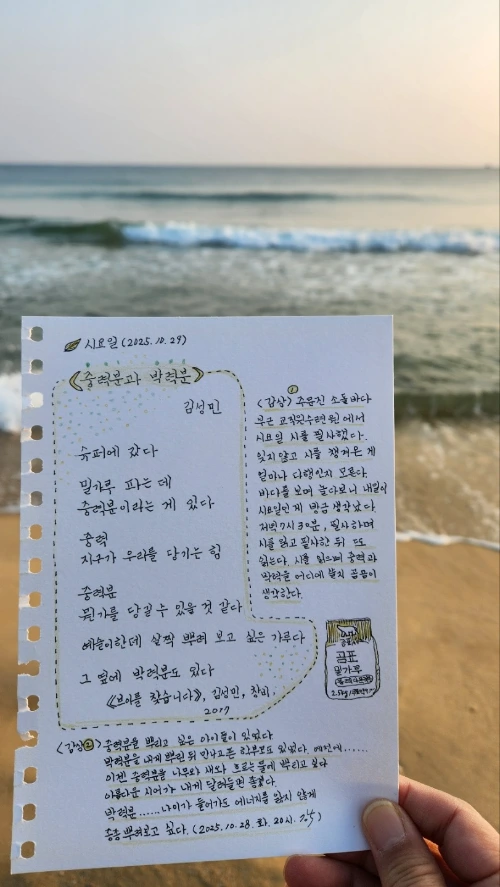 시요일 (2025. 10. 29)
<중력분과 박력분>
김성민
슈퍼에 갔다
밀가루 파는 데
중력분이라는 게 있다
중력
지구가 우리를 당기는 힘
중력분
뭔가를 당길 수 있을 것 같다
예슬이한테 살짝 뿌려 보고 싶은 가루다
그 옆에 박력분도 있다
《브이를 찾습니다》, 김성민, 창비,
2017
①
<감상> 주문진 소돌바다
부근 교직원수련원에서
시요일 시를 필사했다.
잊지 않고 시를 챙겨온 게
얼마나 다행인지 모른다.
바다를 보며 놀다보니 내일이
시요일인 게 방금 생각났다.
저녁 7시 30분, 필사하며
시를 읽고 필사한 뒤 또
읽는다. 시를 읽으며 중력과
박력을 어디에 쓸지 곰곰이
생각한다.
곰표
밀가루
2.5kg
<감상②> 중력분을 뿌리고 싶은 아이들이 있었다
박력분을 내게 뿌린 뒤 만나고픈 하루도 있었다. 예전에......
이젠 중력분을 나무와 새와 흐르는 물에 뿌리고 싶다
아름다운 시어가 내게 달려들면 좋겠다
박력분...... 나이가 들어가도 에너지를 잃지 않게
솔솔 뿌려보고 싶다. (2025. 10. 28. 화. 20시.